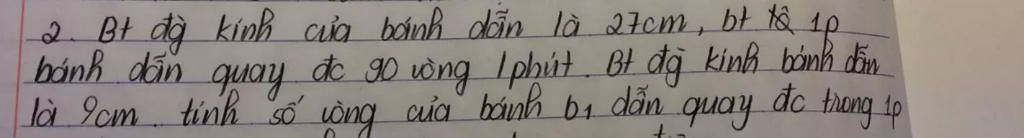 2. Bt đg kính của bánh dẫn là 27cm, bt tđ 1p
bánh dẫn quay đc 90 vòng 1phút. Bt đg kính bánh dẫn
là 9cm. tính số vòng của bánh b₁ dẫn quay đc trong 1p